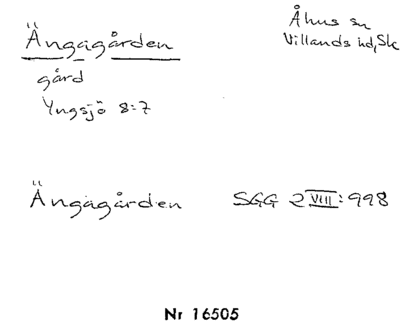 Ängagården
Åhus sn
Villands hd, Sk
gård
Yngsjö 8:7
Ängagården
SGG 2 VIII: 998
Nr 16505